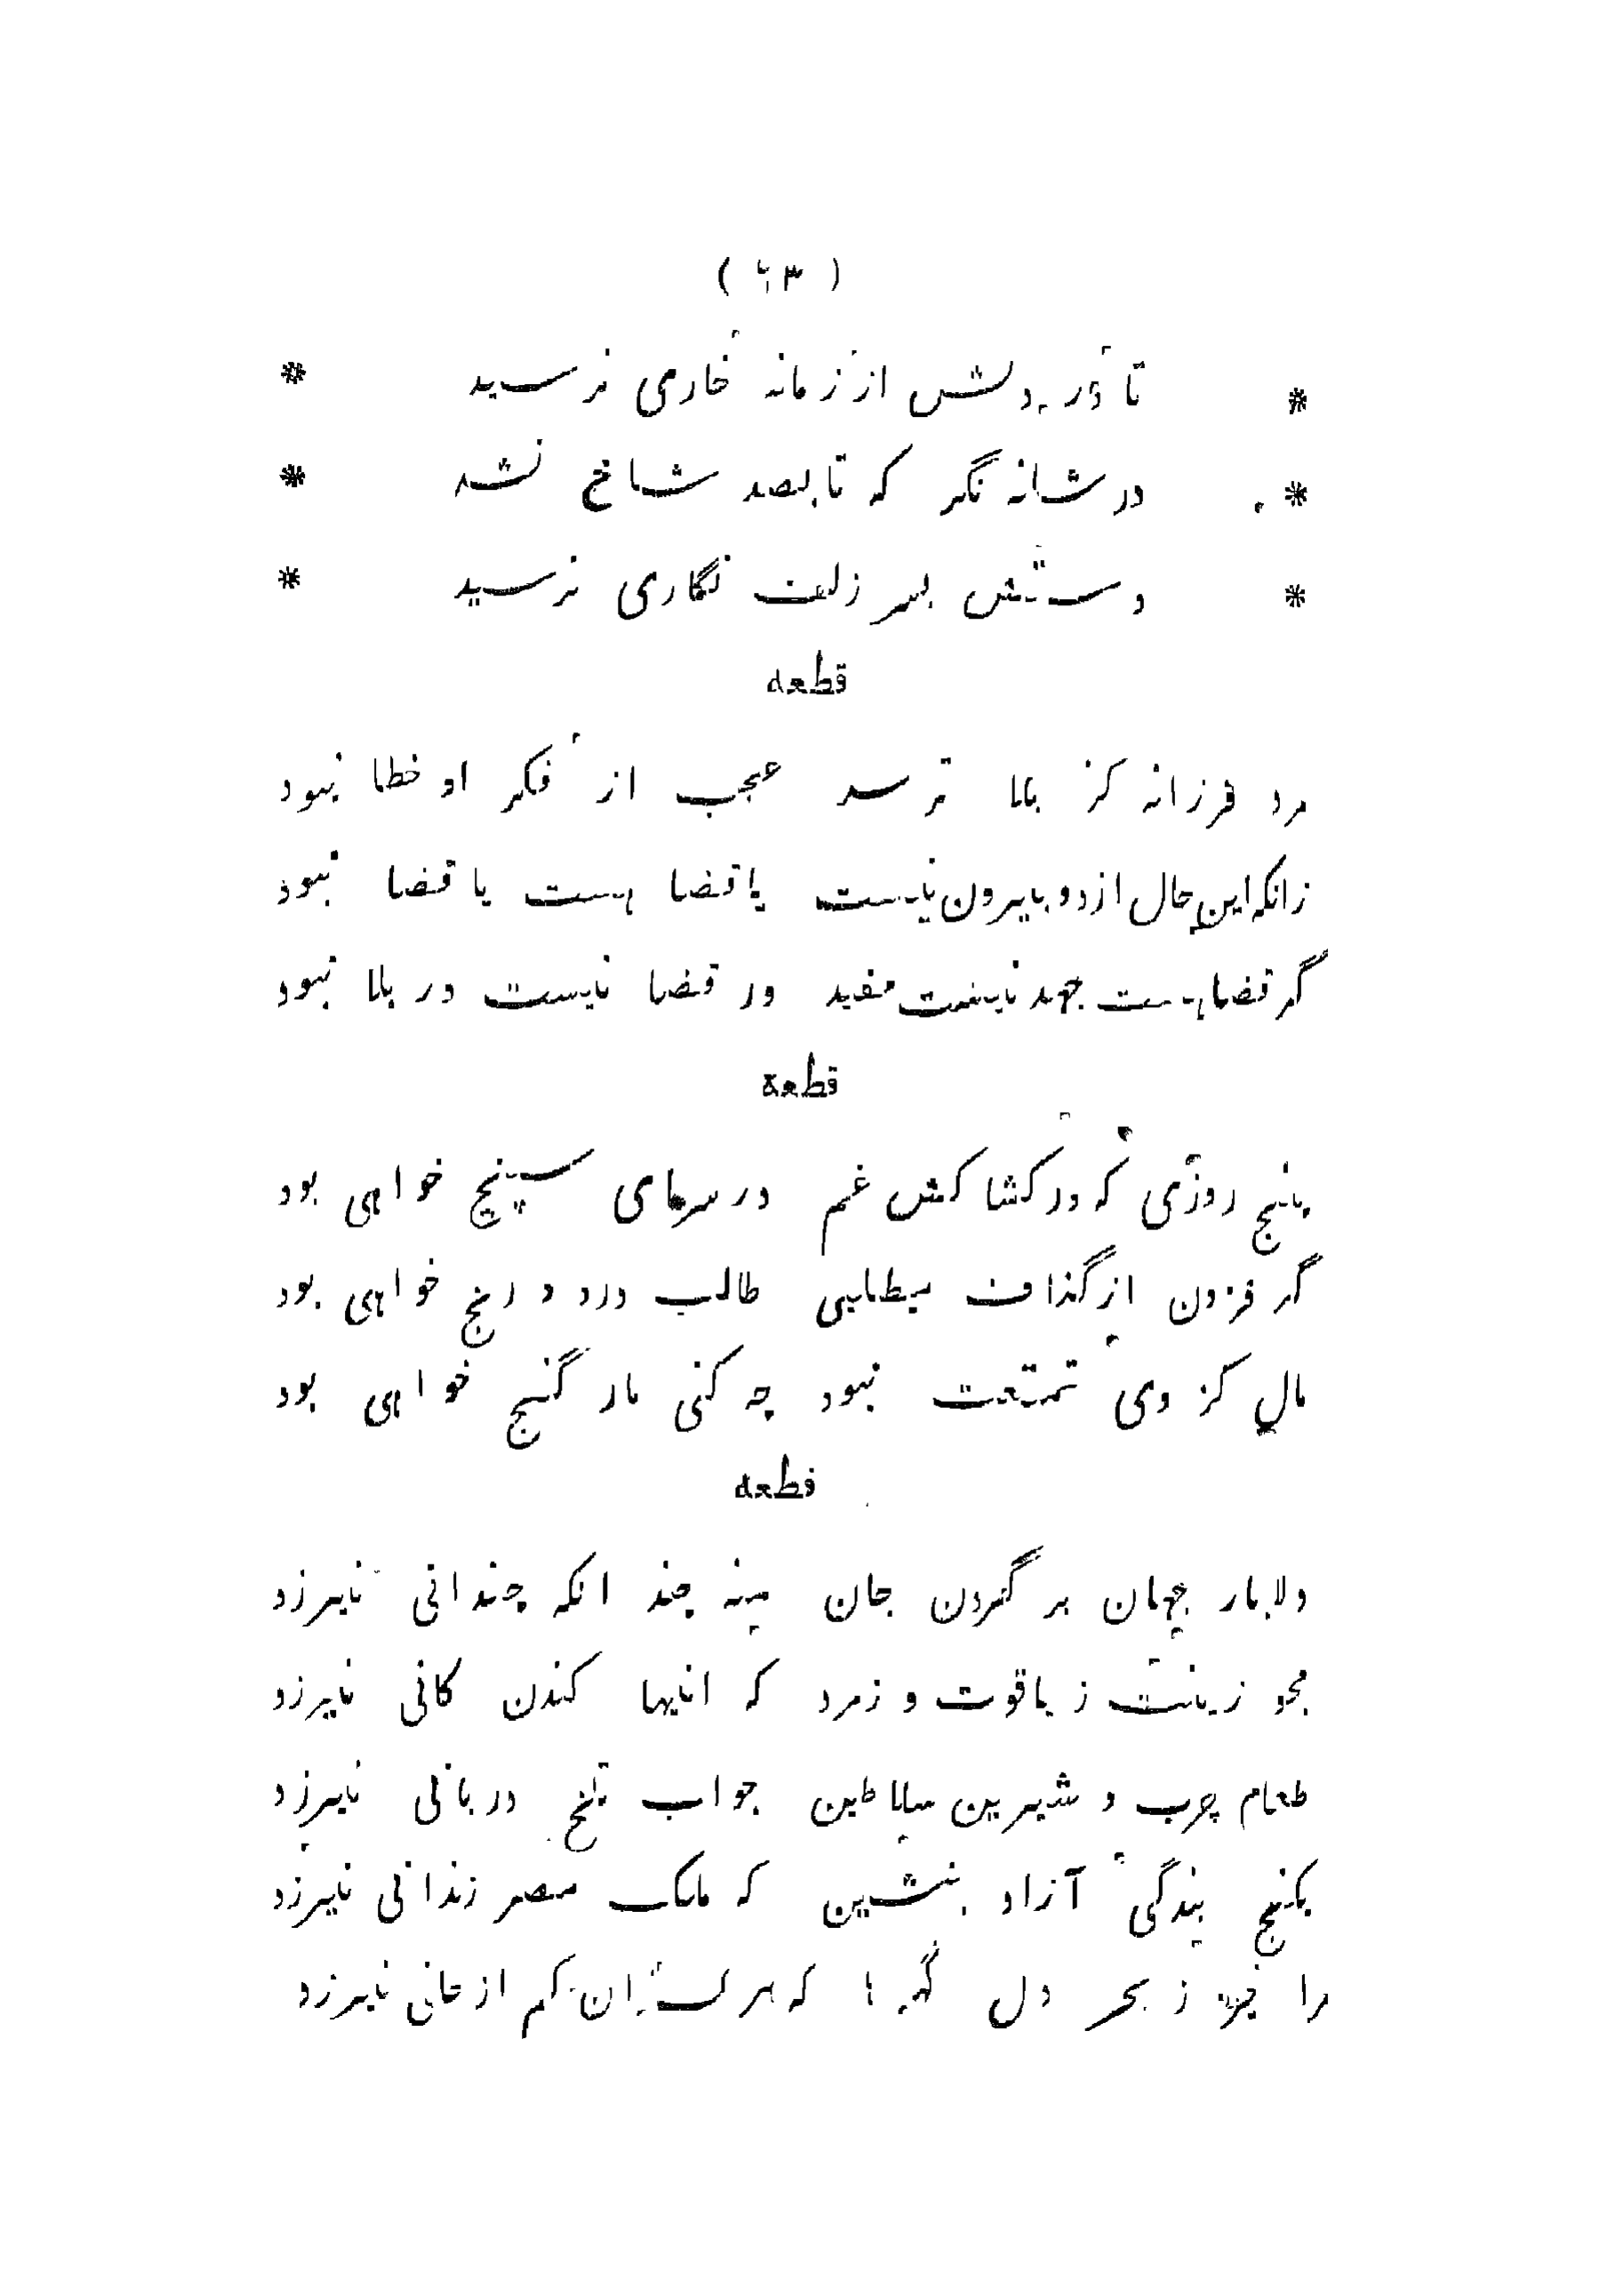 ( ۶۳ )
* تا در دلش از زمانه خاری نرسید *
* در شانه نگر که تا بصد شاخ نشد *
* دستش بسر زلف نگاری نرسید *
قطعه
مرد فرزانه کز بلا ترسد عجب از فکر او خطا نبود
زانکه این حال از دو بیرون نیست یا قضا هست یا قضا نبود
گر قضا هست جهد نیست مفید ور قضا نیست در بلا نبود
قطعة
پنج روزی که در کشاکش غم در سرای سپنج خواهی بود
گر فزون از گذاف میطلبی طالب درد و رنج خواهی بود
مال کز وی تمتعت نبود چه کنی مار گنج خواهی بود
قطعه
دلا بار جهان بر گردن جان منه چند انکه چندانی نیرزد
مجو زینت ز یاقوت و زمرد که اینها کندن کانی نیرزد
طعام چرب و شیرین سلاطین جواب تلخ دربانی نیرزد
بکنج بندگی آزاد بنشین که ملک مصر زندانی نیرزد
مرا ز بحر دل گهرها که هر کم از نیرزد